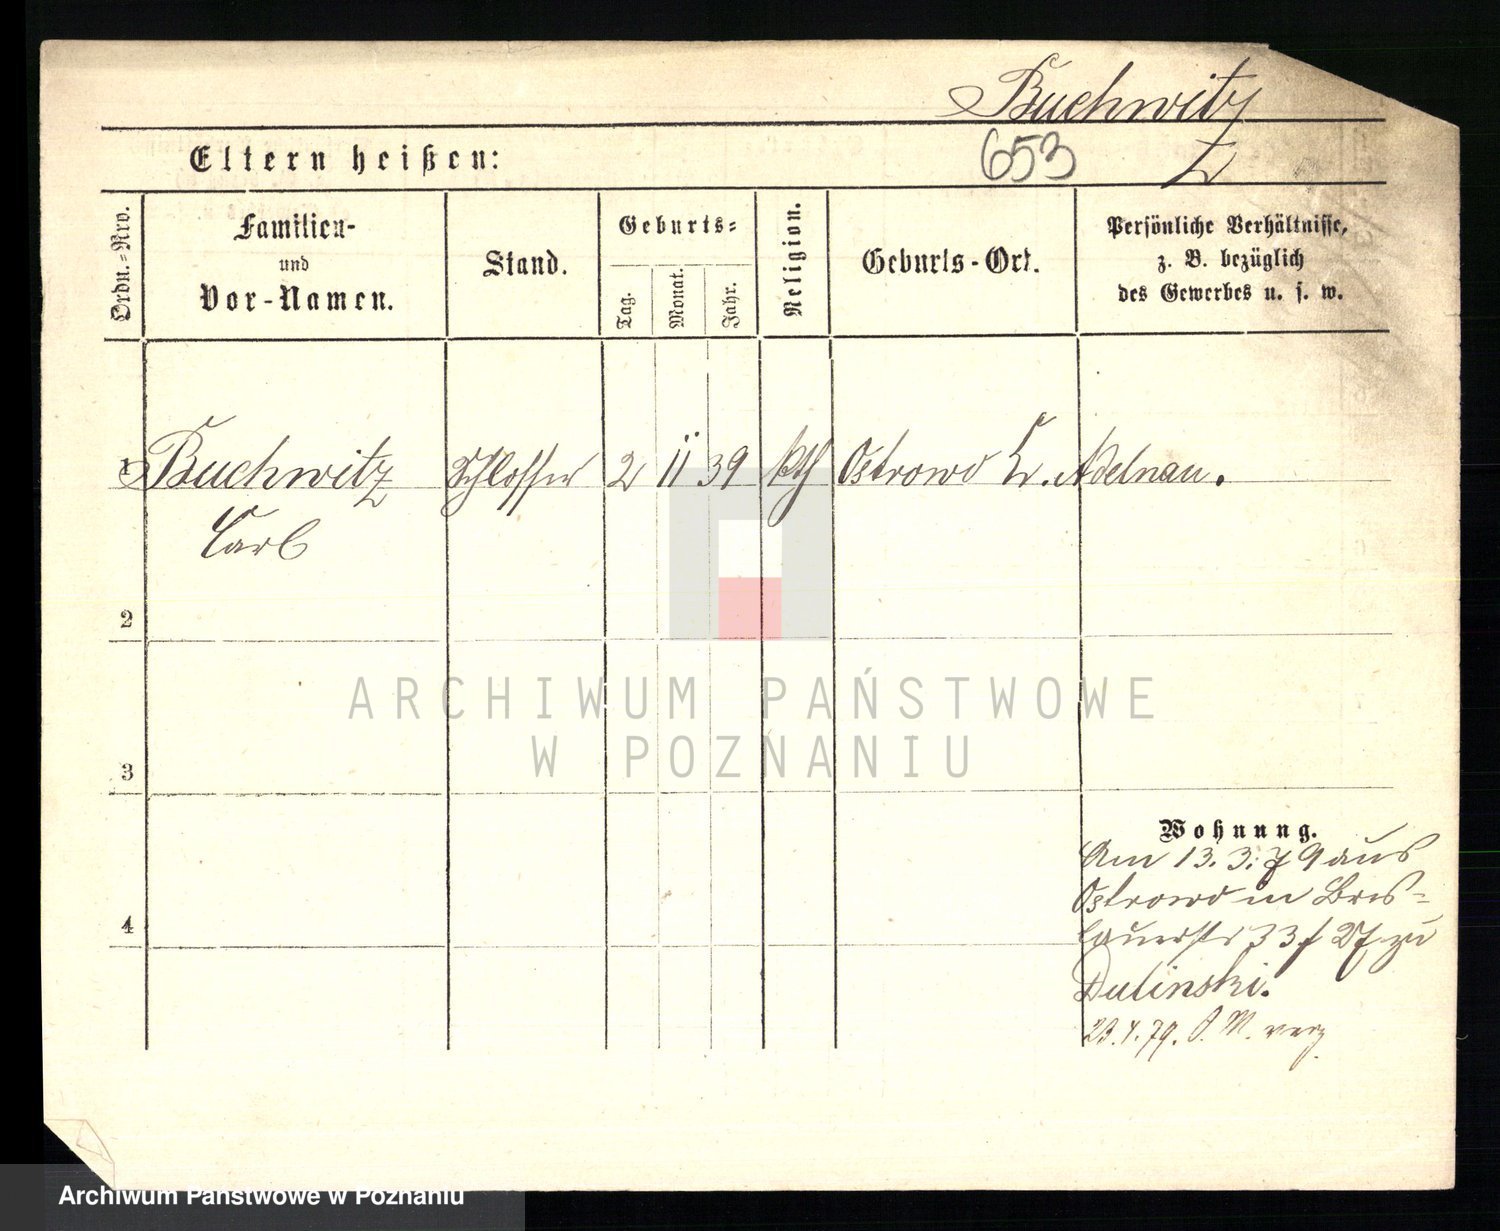 Buchwitz
653
Eltern heißen:
Ordn.-Nro.
Familien-
und
Vor-Namen.
Stand.
Geburts-
Tag.
Monat.
Jahr.
Religion.
Geburts-Ort.
Persönliche Verhältnisse,
z. B. bezüglich
des Gewerbes u. s. w.
1 Buchwitz Schlosser 2 11 39 kth Ostrowo Kr. Adelnau.
Carl
2
ARCHIWUM PAŃSTWOWE
W POZNANIU
3
Wohnung.
Am 13.3.79 aus
Ostrowo in Bres-
lauerstr 33 zu
4
Dulinski.
23.4.79. verz
Archiwum Państwowe w Poznaniu